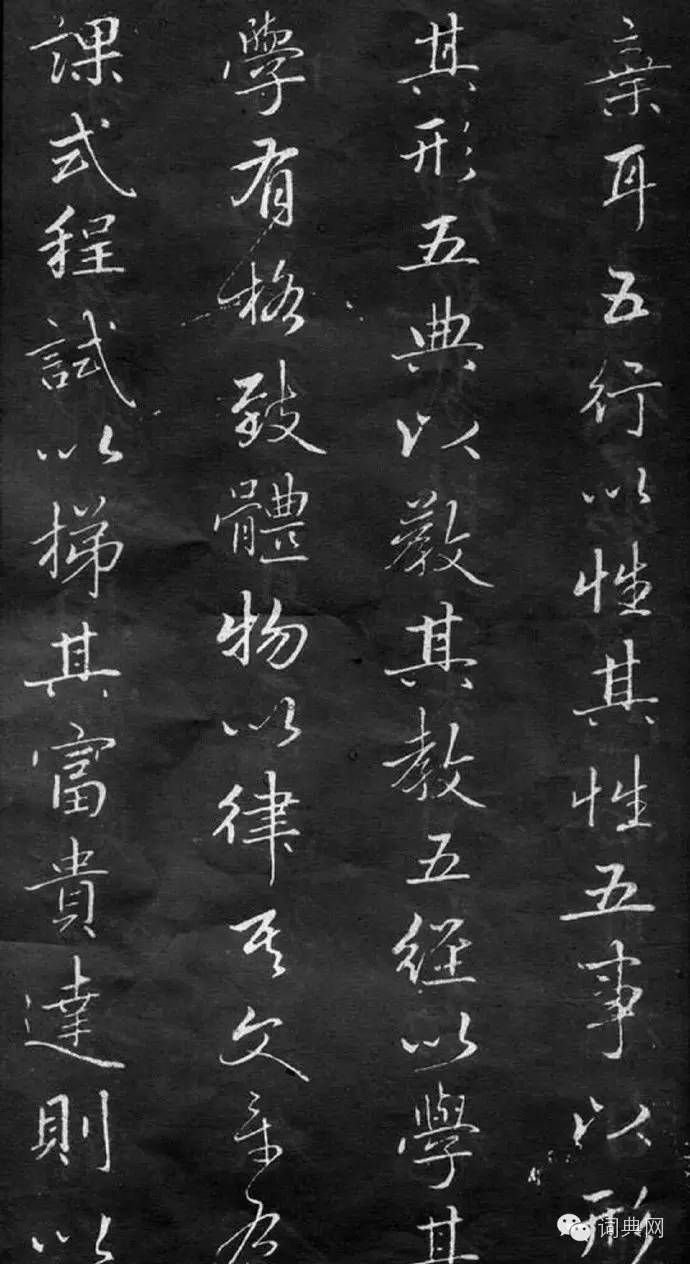 棄耳五行以性其性五事以形
其形五典以教其教五經以學其
學有格致體物以律其文章有
課式程試以梯其富貴達則以
词典网